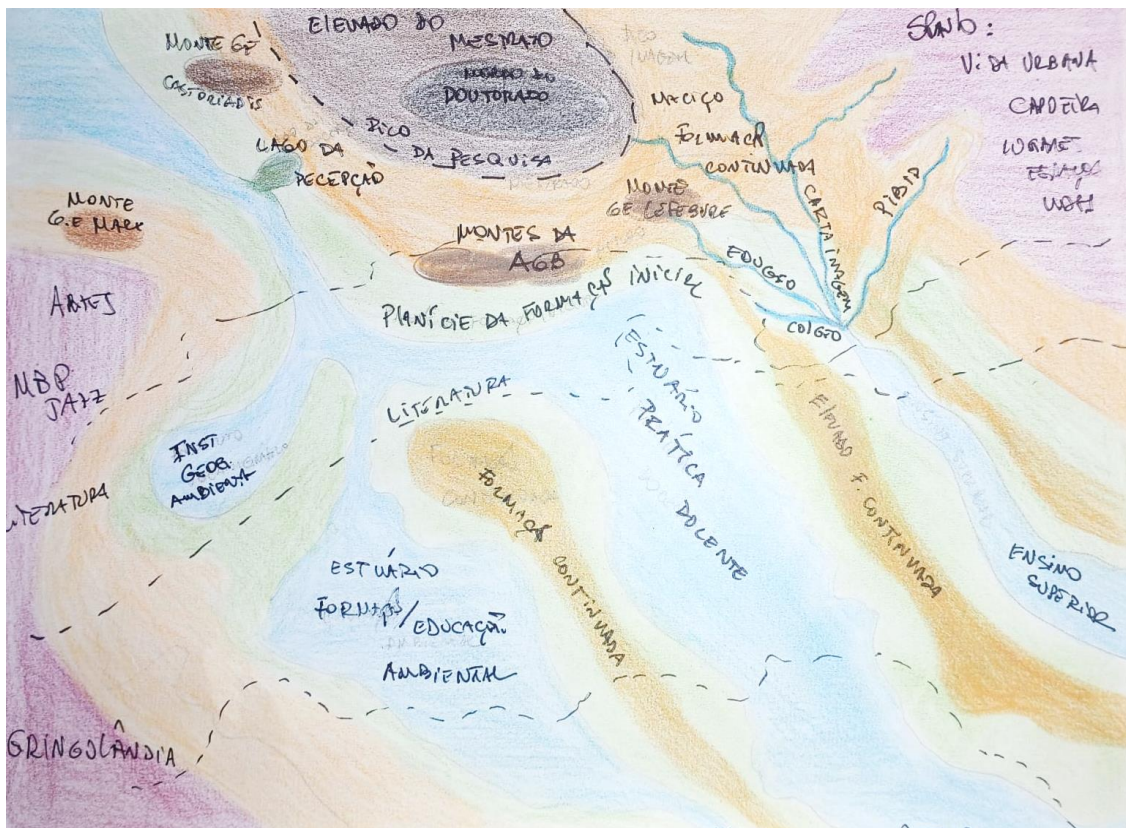 ELEVADO DO
MESTRADO
DOUTORADO
PICO
DA PESQUISA
MONTE GE
CASTORIADIS
LAGO DA
PECEPÇÃO
MONTE
G.E MARX
MONTES DA
AGB
MACIÇO
FORMAÇÃ
CONTINUADA
MONTE
GE LEFEBURE
CARTA IMAGEM
PIBID
EDUGEO
COLGEO
VIDA URBANA
CAPOEIRA
ARTES
MBP
JAZZ
LITERATURA
PLANÍCIE DA FORMAÇÃ INICIAL
LITERATURA
INST
GEOG
AMBIENTA
ESTUÁRIO
PRÁTICA
DOCENTE
FORMAÇÃ CONTINUADA
ELEVADO F. CONTINUADA
ENSINO
SUPERIOR
ESTUÁRIO
FORMAÇÃ/EDUCAÇÃO
AMBIENTAL
GRINGOLÂNDIA